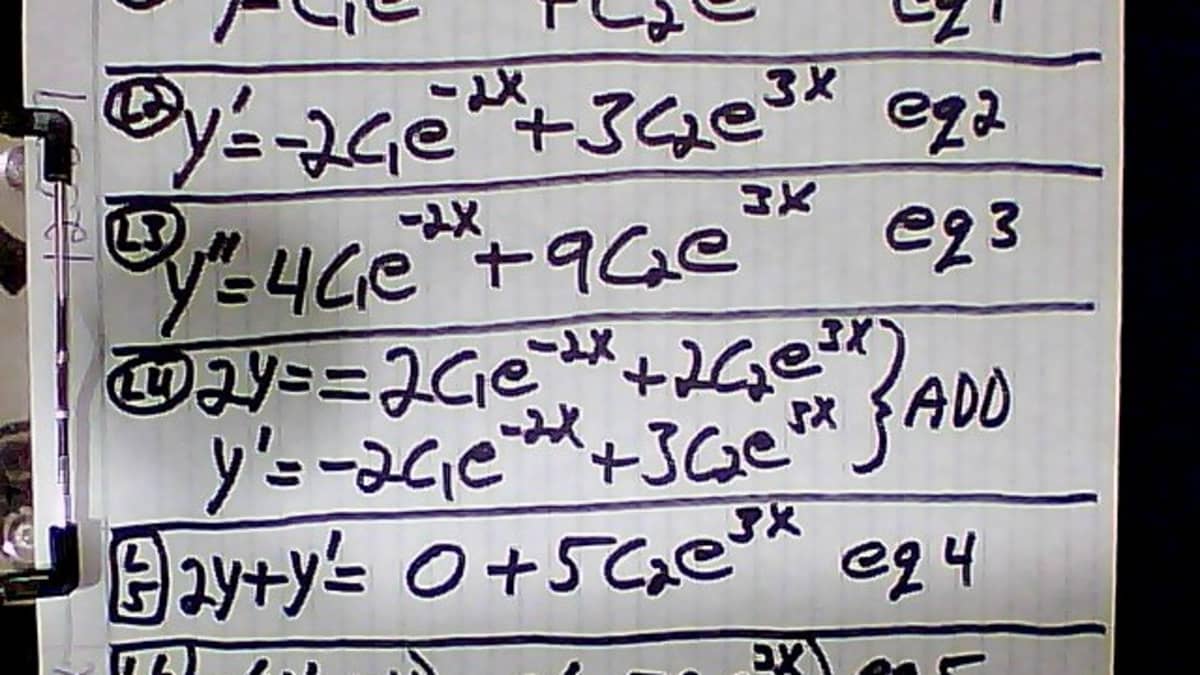 L2 y'=-2C₁e⁻²ˣ+3C₂e³ˣ eq2
L3 y"=4C₁e⁻²ˣ+9C₂e³ˣ eq3
L4 2y==2C₁e⁻²ˣ+2C₂e³ˣ } ADD
y'=-2C₁e⁻²ˣ+3C₂e³ˣ
L5 2y+y'= 0+5C₂e³ˣ eq4